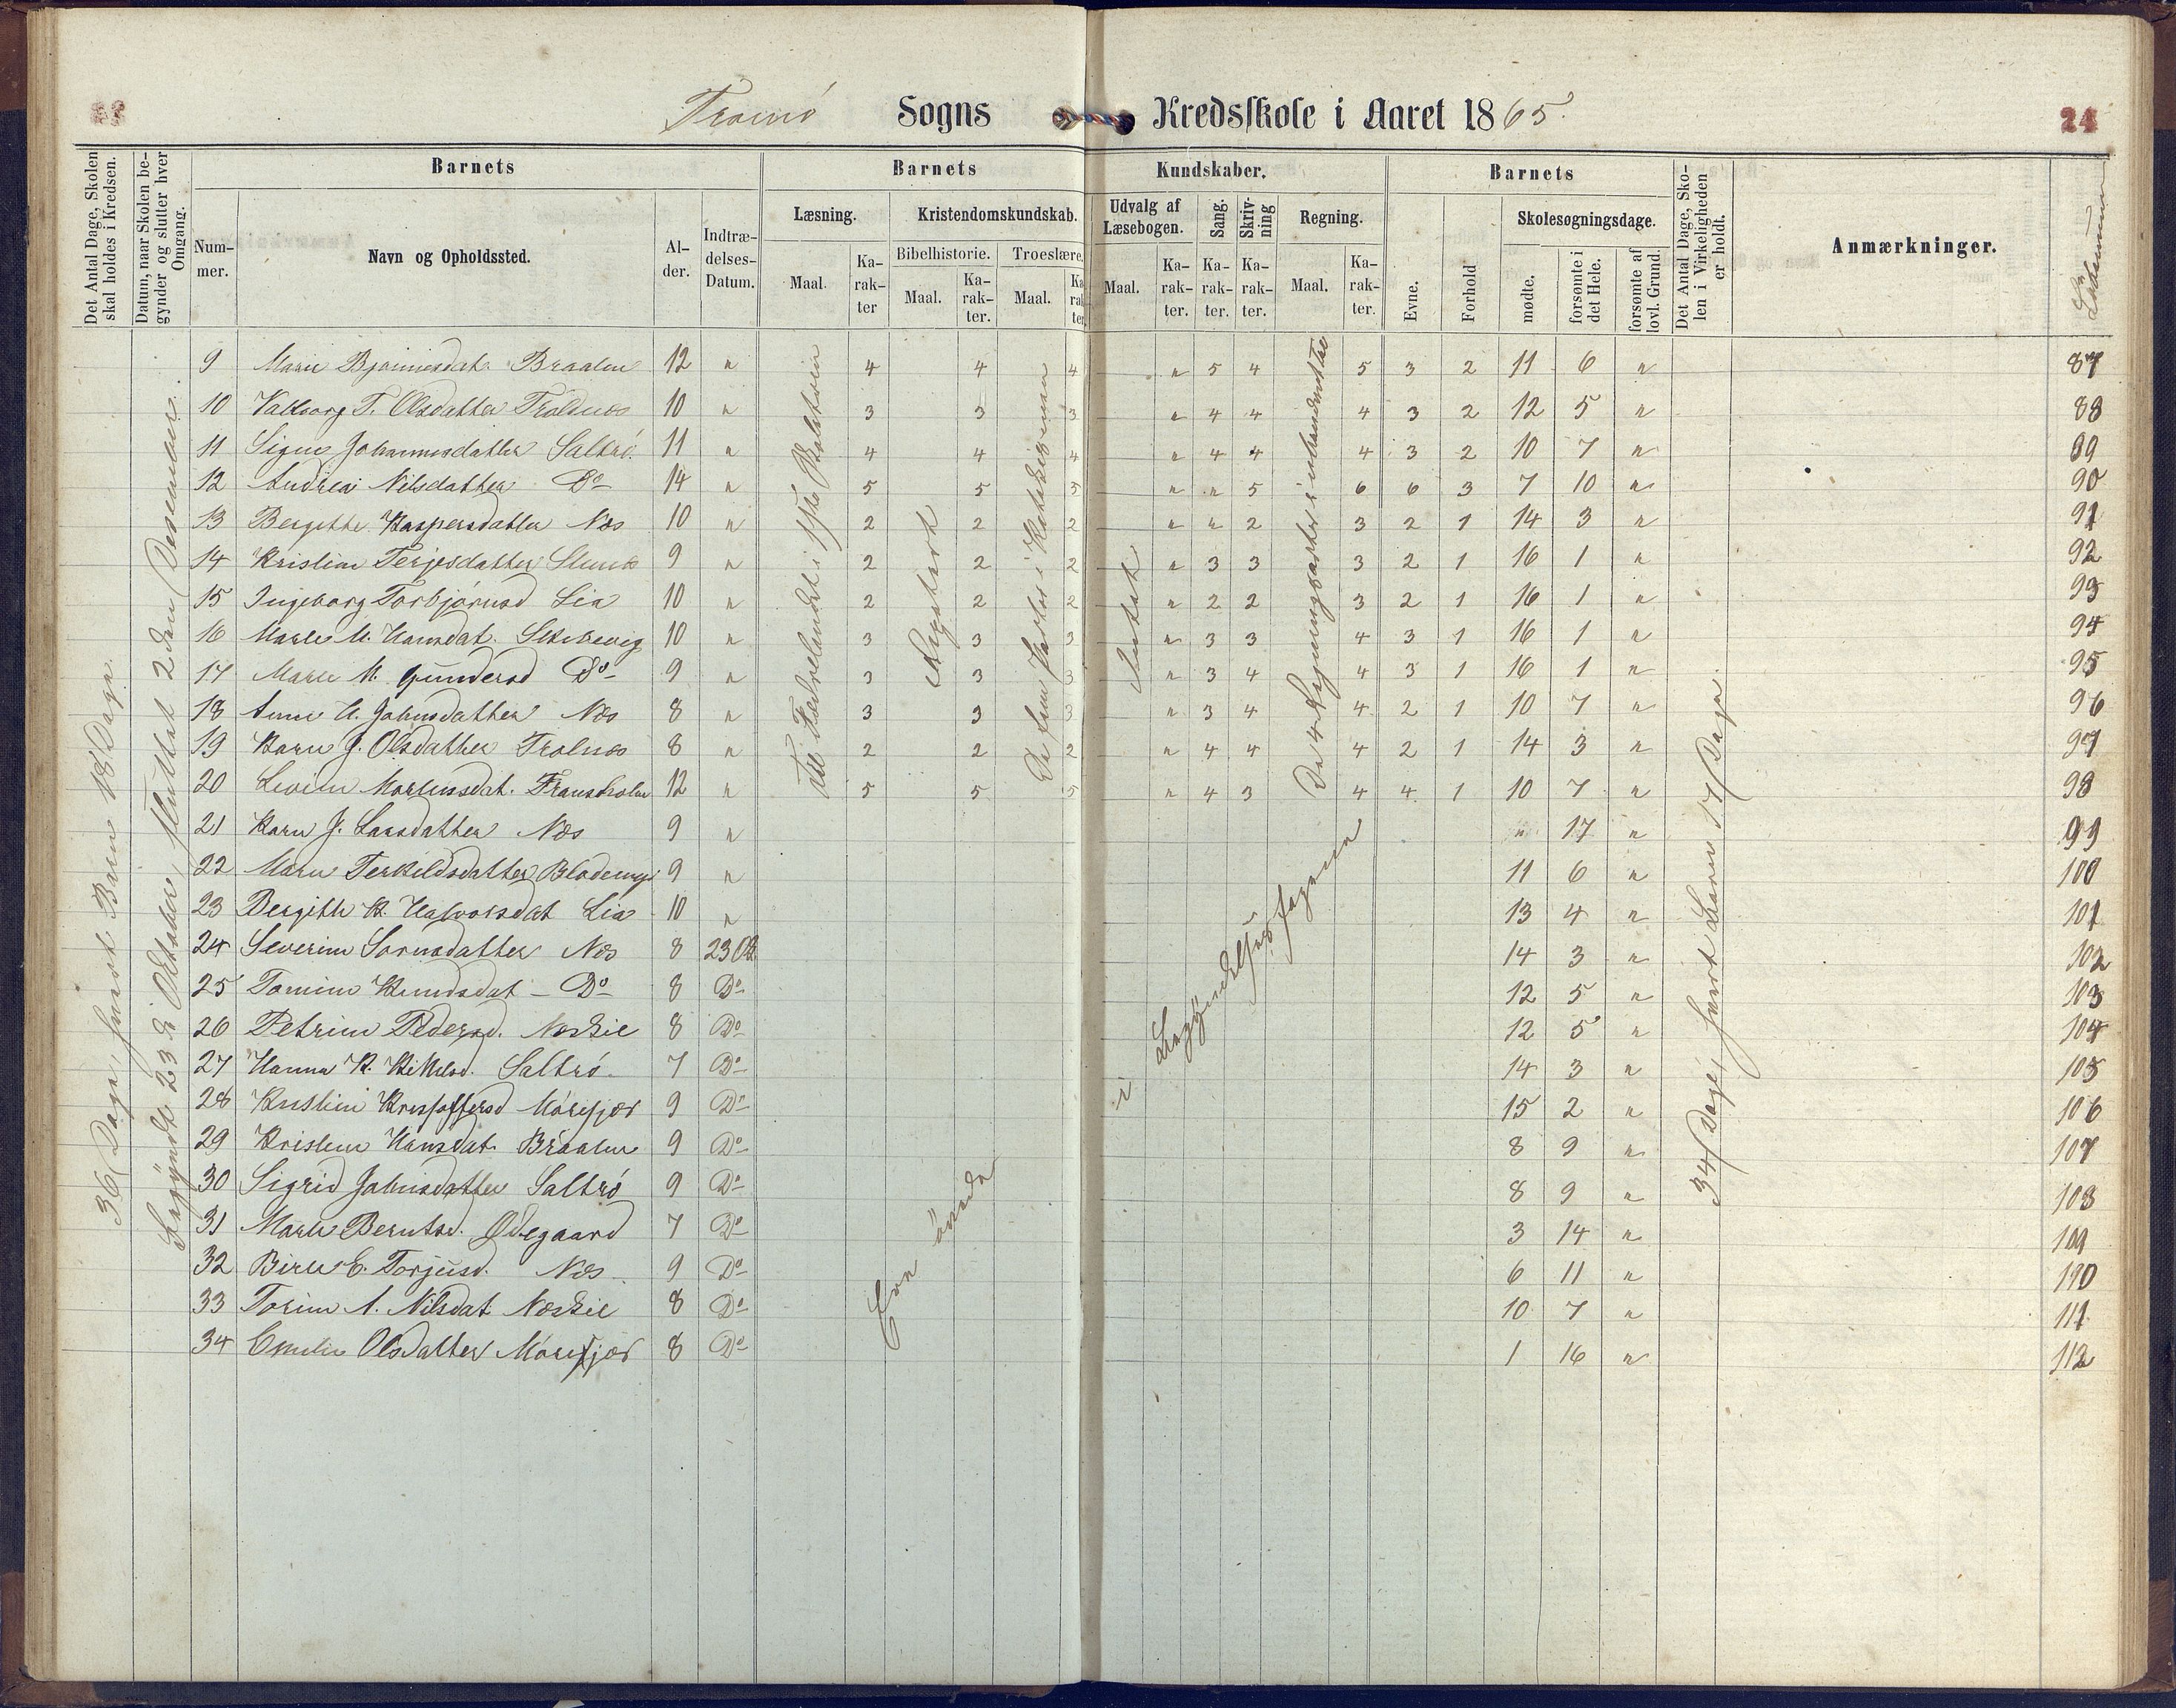 23
Tromø Sogns Kredsskole i Aaret 1865.
24
Det Antal Dage, Skolen skal holdes i Kredsen.
Datum, naar Skolen begynder og slutter hver Omgang.
Barnets
Nummer.
Navn og Opholdssted.
Alder.
Indtrædelses-Datum.
Barnets Kundskaber.
Læsning.
Maal.
Karakter
Kristendomskundskab.
Bibelhistorie.
Maal.
Karakter.
Troeslære.
Maal.
Karakter.
Udvalg af Læsebogen.
Maal.
Karakter.
Sang.
Karakter.
Skrivning
Karakter.
Regning.
Maal.
Karakter.
Barnets
Evne.
Forhold
Skolesøgningsdage.
mødte.
forsømte i det Hele.
forsømte af lovl. Grund.
Det Antal Dage, Skolen i Virkeligheden er holdt.
Anmærkninger.
36 Dage, hvert Barn 18 Dage.
Begyndte 23de Oktober, sluttet 2den Desember.
34 Dage, hvert Barn 17 Dage
Intet
i Begyndelsesfagene
9 Marie Bjørnnesdat. Braalen 12 " 4 4 4 " 5 4 5 3 2 11 6 " 87
10 Valborg T. Olsdatter Troldnæs 10 " 3 3 3 " 4 4 4 3 2 12 5 " 88
11 Signe Johannesdatter Saltrø. 11 " 4 4 4 " 4 4 4 3 2 10 7 " 89
12 Andrea Nilsdatter Do 14 " 5 5 5 " " 5 6 6 3 7 10 " 90
13 Bergitte Kaspersdatter Næs 10 " 2 2 2 " " 2 3 2 1 14 3 " 91
14 Kristine Terjesdatter 9 " 2 2 2 " 3 3 3 2 1 16 1 " 92
15 Ingeborg Torbjørnsd Lia 10 " 2 2 2 " 2 2 3 2 1 16 1 " 93
16 Maren M. Hansdat. 10 " 3 3 3 " 3 3 4 3 1 16 1 " 94
17 Maren M. Gundersd Do 9 " 3 3 3 " 3 4 4 3 1 16 1 " 95
18 Anne Johnsdatter Næs 8 " 3 3 3 " 3 4 4 2 1 10 7 " 96
19 Karen J. Olsdatter Trolnæs 8 " 2 2 2 " 4 4 4 2 1 14 3 " 97
20 Levine Mortensdat. 12 " 5 5 5 " 4 3 4 4 1 10 7 " 98
21 Karen J. Larsdatter Næs 9 " " 17 " 99
22 Maren Terkildsdatter 9 " 11 6 " 100
23 Bergitte K. Halvorsdat Lia 10 " 13 4 " 101
24 Severine Sørensdatter Næs 8 23 Ok. 14 3 " 102
25 Tomine Knudsdat Do 8 Do 12 5 " 103
26 Petrine Pedersd. Næskil 8 Do 12 5 " 104
27 Hanna K. Kittelsd. Saltrø. 7 Do 14 3 " 105
28 Kristine Kristoffersd Mørefjær 9 Do 15 2 " 106
29 Kristine Hansdat. Braalen 9 Do 8 9 " 107
30 Sigrid Johnsdatter Saltrø 9 Do 8 9 " 108
31 Maren Berntsd. Ødegaard 7 Do 3 14 " 109
32 E. Torjusd. Næs 9 Do 6 11 " 110
33 Torine A. Nilsdat Næskil 8 Do 10 7 " 111
34 Emilie Olsdatter Mørefjær 8 Do 1 16 " 112